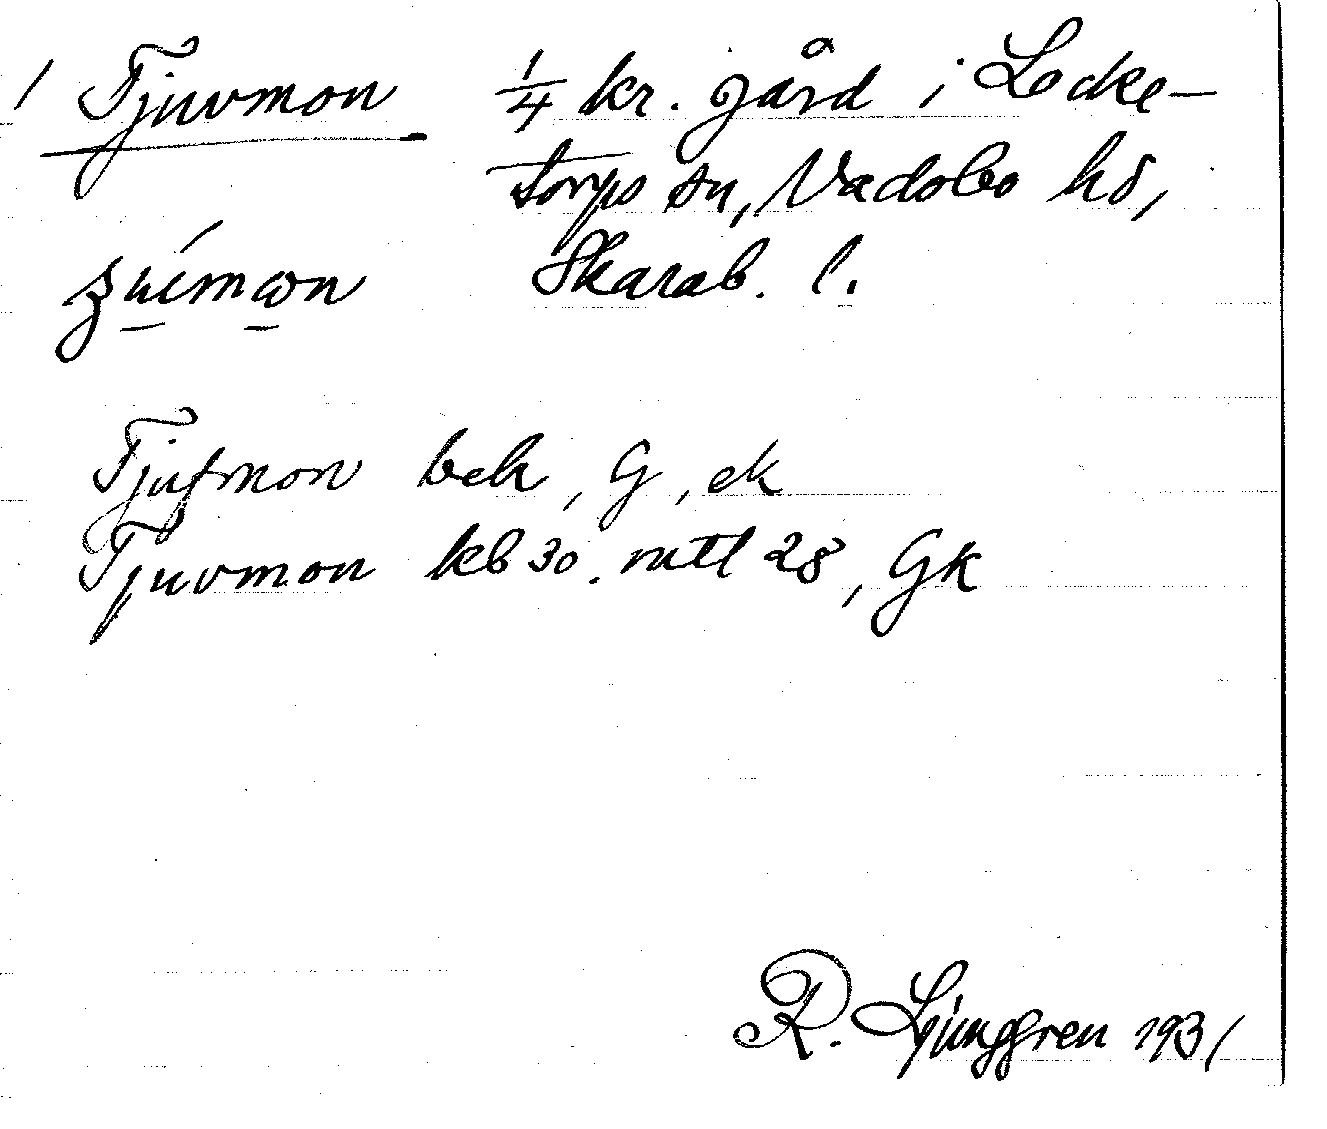 1 Tjuvmon 1/4 kr. gård i Locke-
torps sn, Vadsbo hd,
Skarab. l.
Tjufmon bek, G, ek
Tjuvmon kb 30. mtl 28, Gk
R. Ljunggren 1931